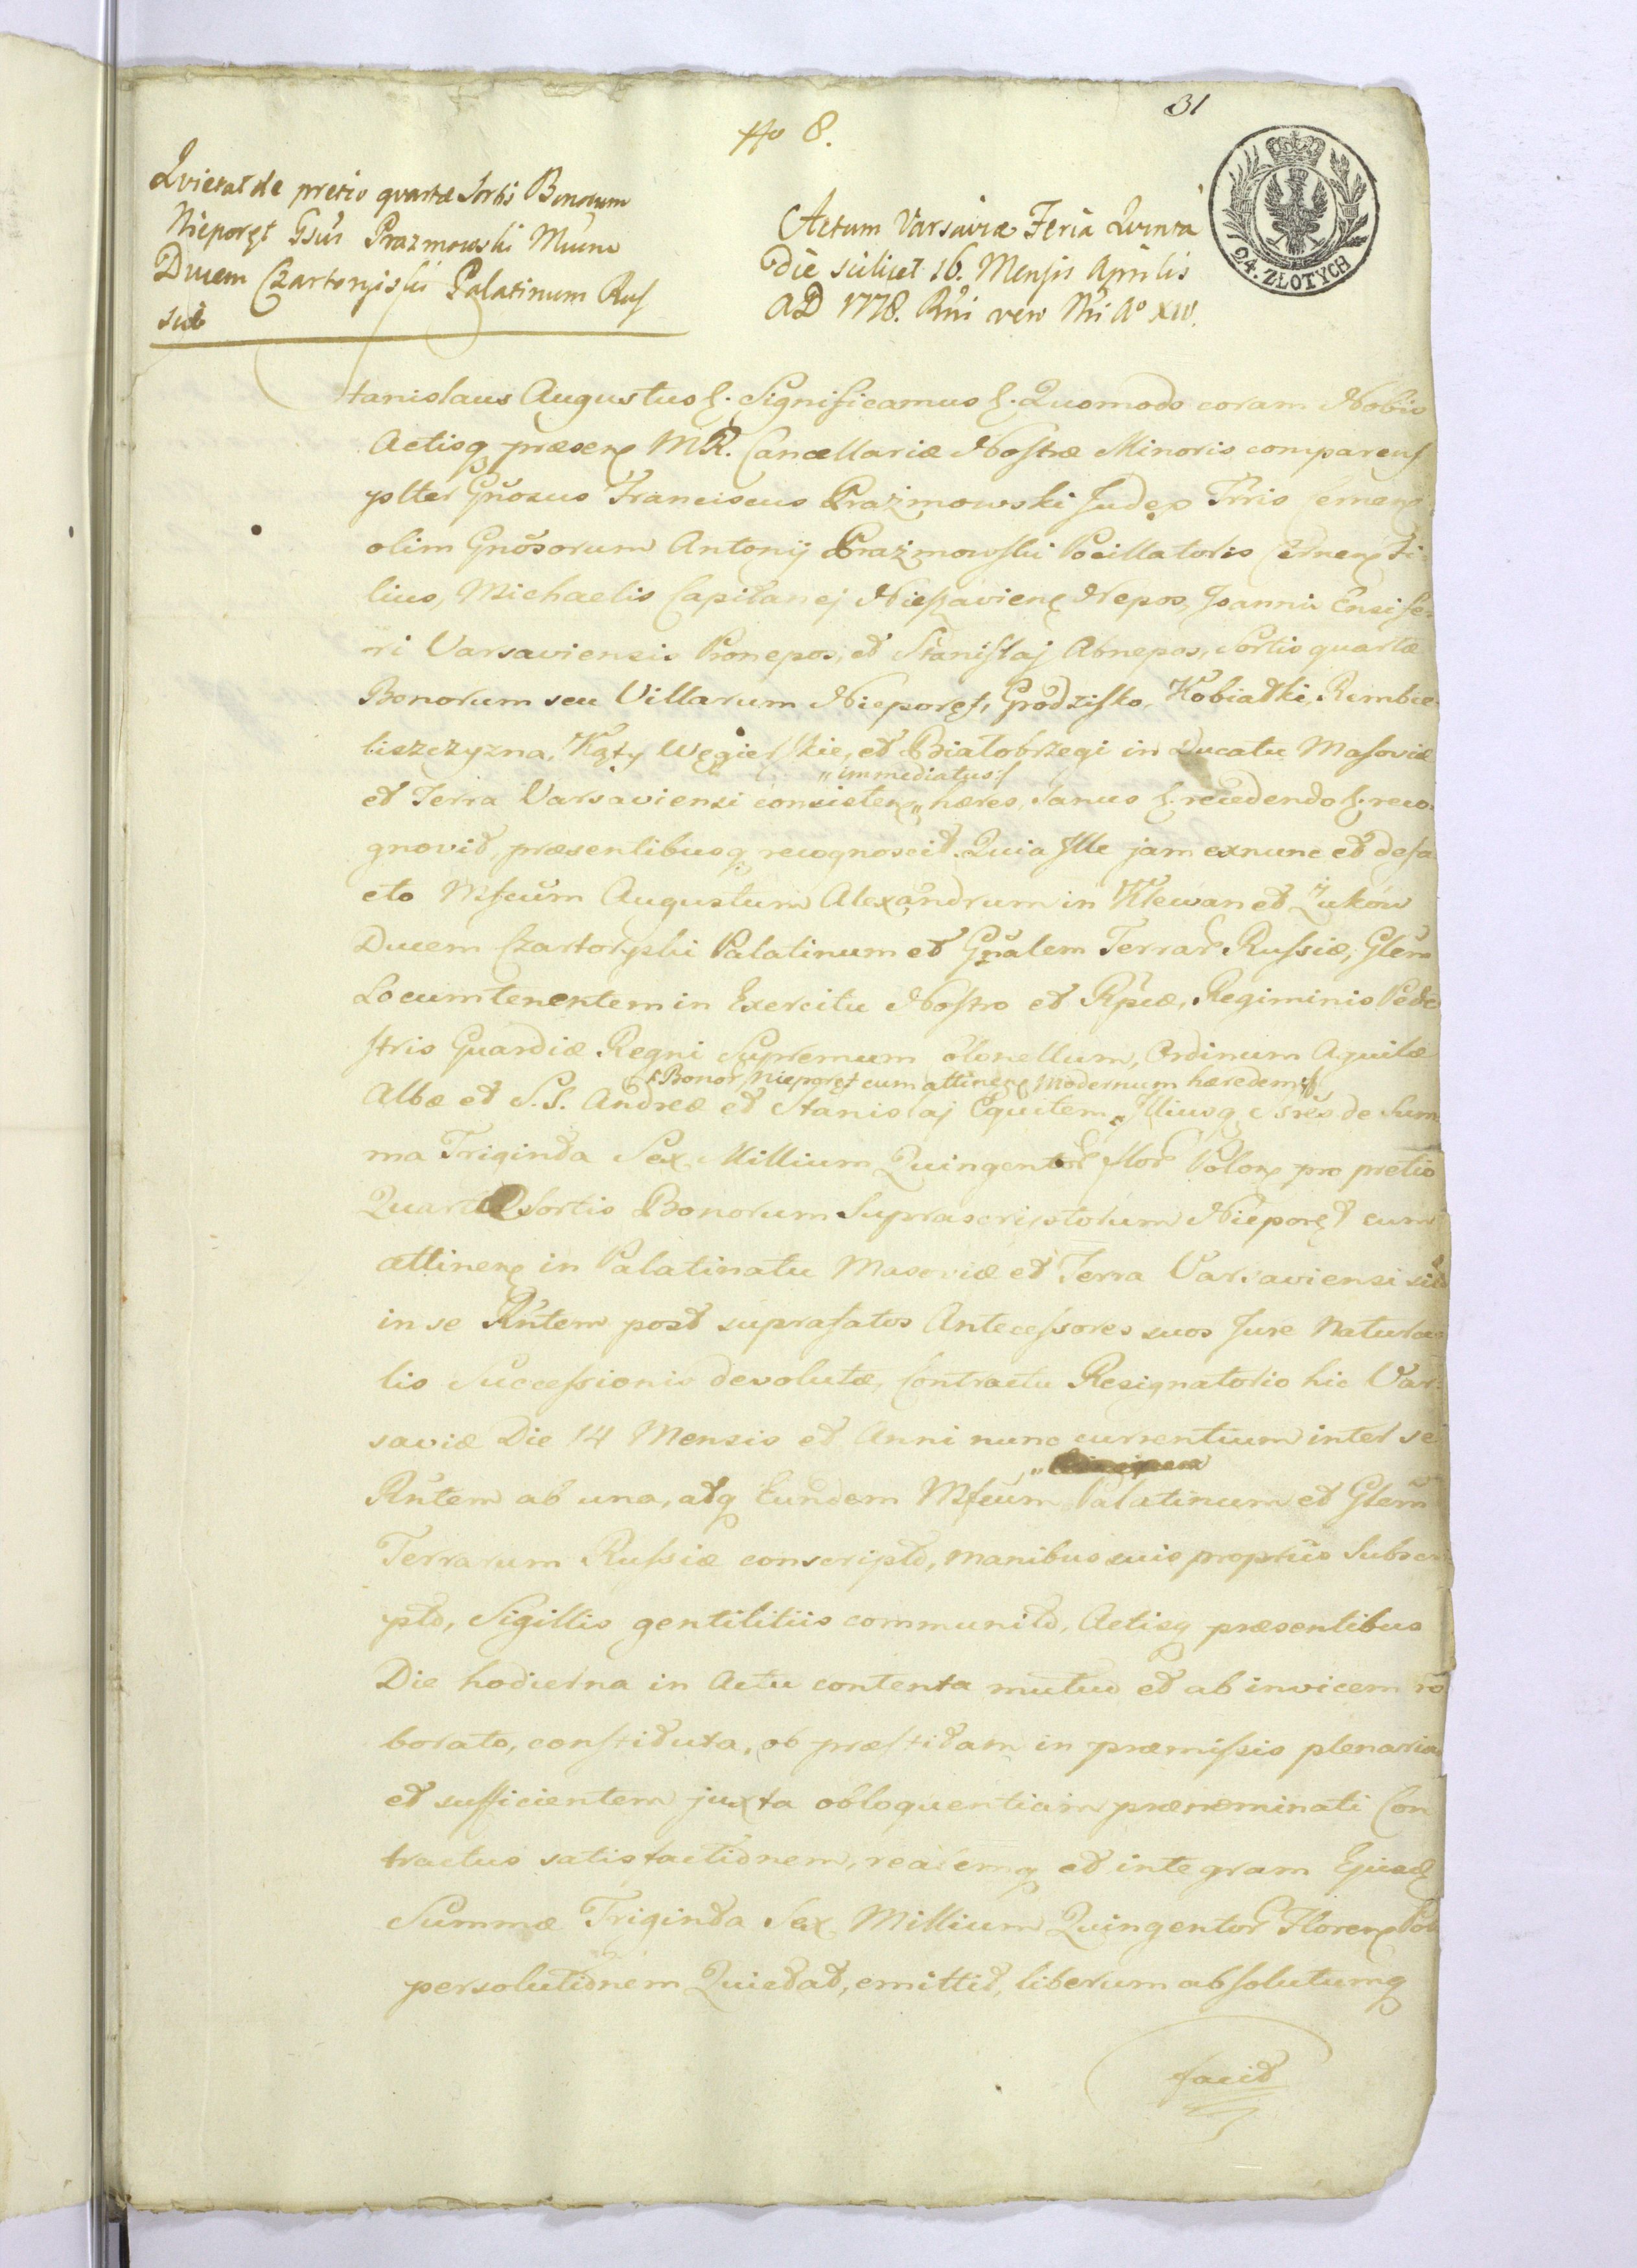 31
No 8.
Quietat de pretio quartæ Sortis Bonorum
Nieporęt Gsus Prazmowski Mcum
Ducem Czartoryiski Palatinum Rus
siæ
Actum Varsaviæ Feria Quinta
Die scilicet 16. Mensis Aprilis
AD 1778. Rni vero Nri Ao XIV.
24. ZŁOTYCH
Stanislaus Augustus &. Significamus &. Quomodo coram Nobis
Actisq præsen MR. Cancellariæ Nostræ Minoris comparens
plter Gnosus Franciscus Prażmowski Judex Trris Cernen
olim Gnosorum Antonij Prażmowski Pocillatoris Cernen Fi-
lius, Michaelis Capitanej Nieszavien Nepos, Joannis Ensife-
ri Varsaviensis Pronepos, et Stanislaj Abnepos, Sortis quartæ
Bonorum seu Villarum Nieporęt, Grodzisko, Kobiałki, Rembie-
liszczyzna, Kąty Węgierskie, et Białobrzegi in Ducatu Masoviæ
" immediatus
et Terra Varsaviensi consisten " hæres, Sanus &. recedendo &. reco-
gnovit, præsentibusq recognoscit. Quia Ille jam exnunc et defa
cto Mfcum Augustum Alexandrum in Klewan et Żuków
Ducem Czartoryski Palatinum et Gnalem Terrar Russiæ, Glem
Locumtenentem in Exercitu Nostro et Rpcæ, Regiminis Pede
stris Guardiæ Regni Supremum Colonellum, Ordinum Aquilæ
Bonor Nieporęt cum attinen Modernum hæredem
Albæ et S.S. Andreæ et Stanislaj Equitem " Illiusq Ssres de Sum
ma Triginta Sex Millium Quingentor flor Polon pro pretio
Quartæ Sortis Bonorum Suprascriptorum Nieporęt cum
attinen in Palatinatu Masoviæ et Terra Varsaviensi sit
in se Rntem post suprafatos Antecessores suos Jure Natura
lis Successionis devolutæ, Contractu Resignatorio hic Var-
saviæ Die 14 Mensis et Anni nunc currentium inter se
Rntem ab una, atq Eundem Mfcum " Palatinum et Glem
Terrarum Russiæ conscripto, manibus suis proprijs Subscri
pto, Sigillis gentilitiis communito, Actisq præsentibus
Die hodierna in Actu contenta mutuo et ab invicem ro
borato, constituta, ob præstitam in præmissis plenariam
et sufficientem juxta obloquentiam prænominati Con
tractus satisfactionem, realemq et integram Ejusd
Summæ Triginta Sex Millium Quingentor Floren Pol
persolutionem Quietat, emittit, liberum absolutumq
facit